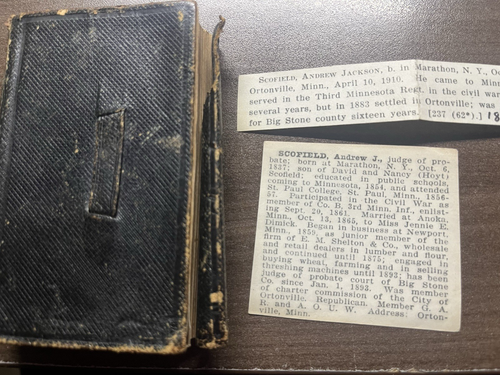 SCOFIELD, ANDREW JACKSON, b. in Marathon, N. Y., Oc
Ortonville, Minn., April 10, 1910. He came to Minn
served in the Third Minnesota Regt. in the civil war
several years, but in 1883 settled in Ortonville; was
for Big Stone county sixteen years. [237 (62*).] 18
SCOFIELD, Andrew J., judge of pro-
bate; born at Marathon, N. Y., Oct. 6,
1837; son of David and Nancy (Hoyt)
Scofield; educated in public schools,
coming to Minnesota, 1854, and attended
St. Paul College, St. Paul, Minn., 1856-
57. Participated in the Civil War as
member of Co. B, 3rd Minn. Inf., enlist-
ing Sept. 29, 1861. Married at Anoka,
Minn., Oct. 13, 1865, to Miss Jennie E.
Dimick. Began in business at Newport,
Minn., 1859, as junior member of the
firm of E. M. Shelton & Co., wholesale
and retail dealers in lumber and flour,
and continued until 1875; engaged in
buying wheat, farming and in selling
threshing machines until 1892; has been
judge of probate court of Big Stone
Co. since Jan. 1, 1893. Was member
of charter commission of the City of
Ortonville. Republican. Member G. A.
R. and A. O. U. W. Address: Orton-
ville, Minn.